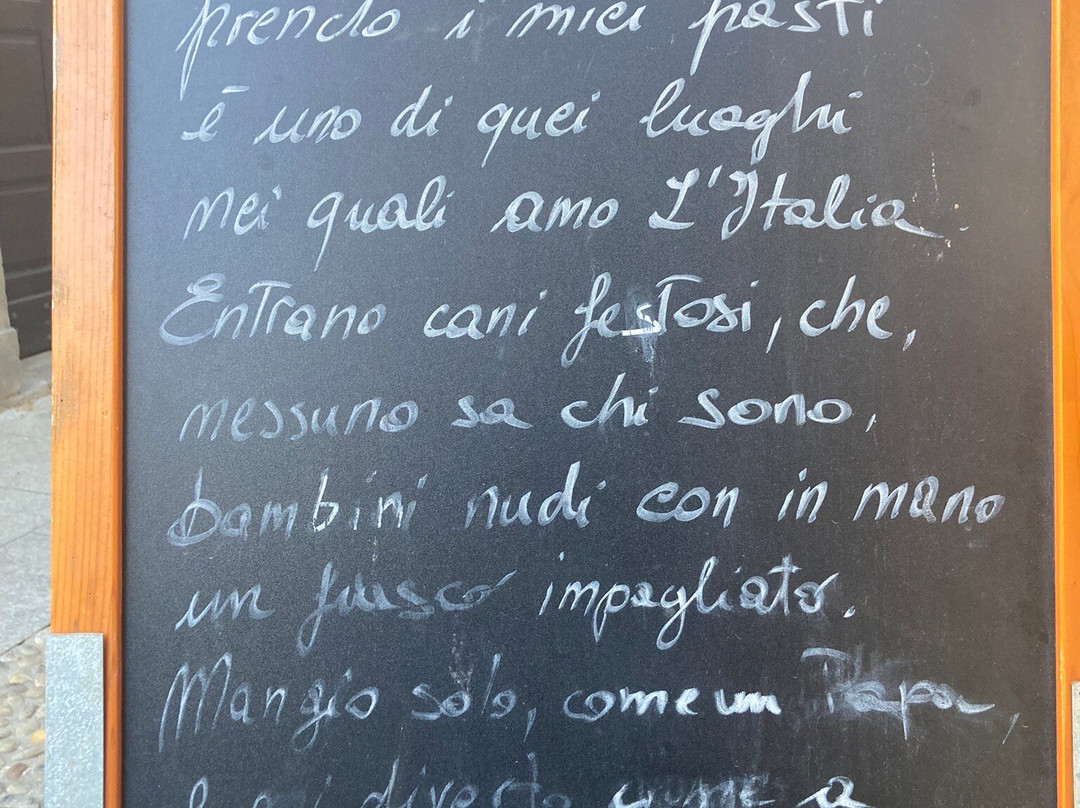 prendo i miei pasti
ē uno di quei luoghi
nei quali amo L'Italia.
Entrano cani festosi, che,
nessuno sa chi sono,
bambini nudi con in mano
un fiasco impagliato.
Mangio solo, come un Papa,
e mi diverto come a